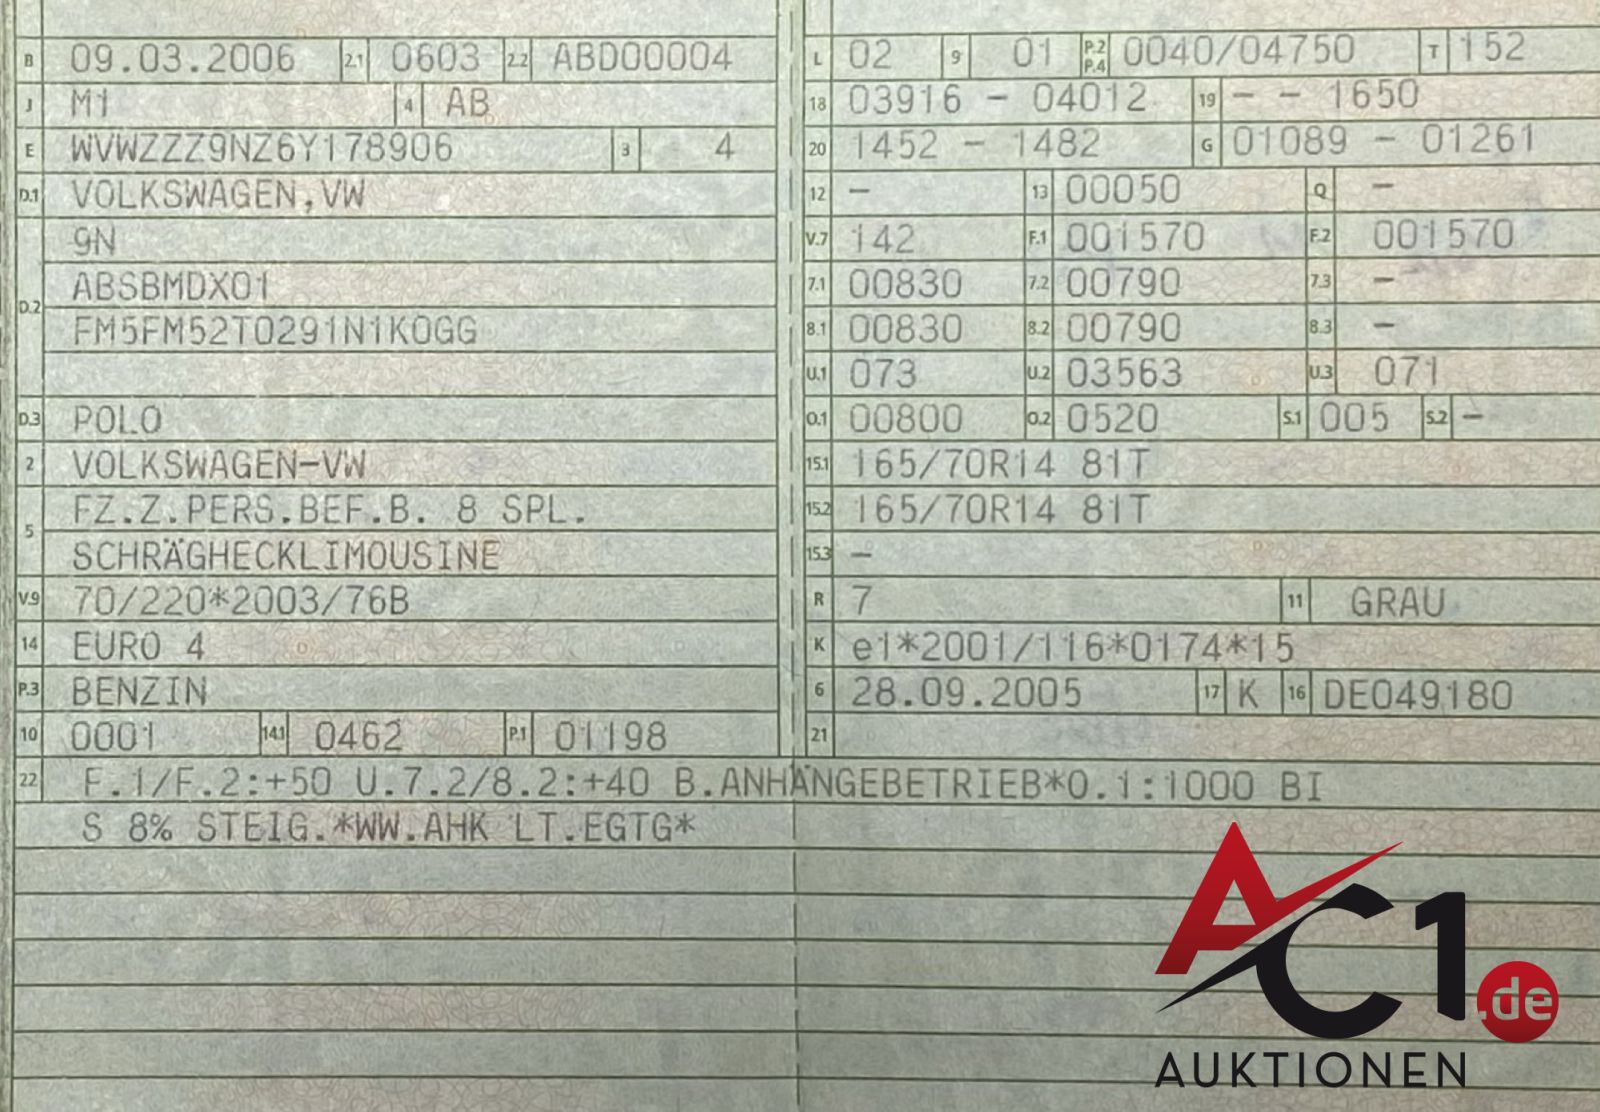 B 09.03.2006 2.1 0603 2.2 ABD00004
J M1 4 AB
E WVWZZZ9NZ6Y178906 3 4
D.1 VOLKSWAGEN,VW
9N
D.2 ABSBMDX01
FM5FM52T0291N1K0GG
D.3 POLO
2 VOLKSWAGEN-VW
5 FZ.Z.PERS.BEF.B. 8 SPL.
SCHRÄGHECKLIMOUSINE
V.9 70/220*2003/76B
14 EURO 4
P.3 BENZIN
10 0001 14.1 0462 P.1 01198
L 02 9 01 P.2 P.4 0040/04750 T 152
18 03916 - 04012 19 - - 1650
20 1452 - 1482 G 01089 - 01261
12 - 13 00050 Q -
V.7 142 F.1 001570 F.2 001570
7.1 00830 7.2 00790 7.3 -
8.1 00830 8.2 00790 8.3 -
U.1 073 U.2 03563 U.3 071
O.1 00800 O.2 0520 S.1 005 S.2 -
15.1 165/70R14 81T
15.2 165/70R14 81T
15.3 -
R 7 11 GRAU
K e1*2001/116*0174*15
6 28.09.2005 17 K 16 DE049180
21
22 F.1/F.2:+50 U.7.2/8.2:+40 B.ANHÄNGEBETRIEB*O.1:1000 BI
S 8% STEIG.*WW.AHK LT.EGTG*
AC1.de
AUKTIONEN